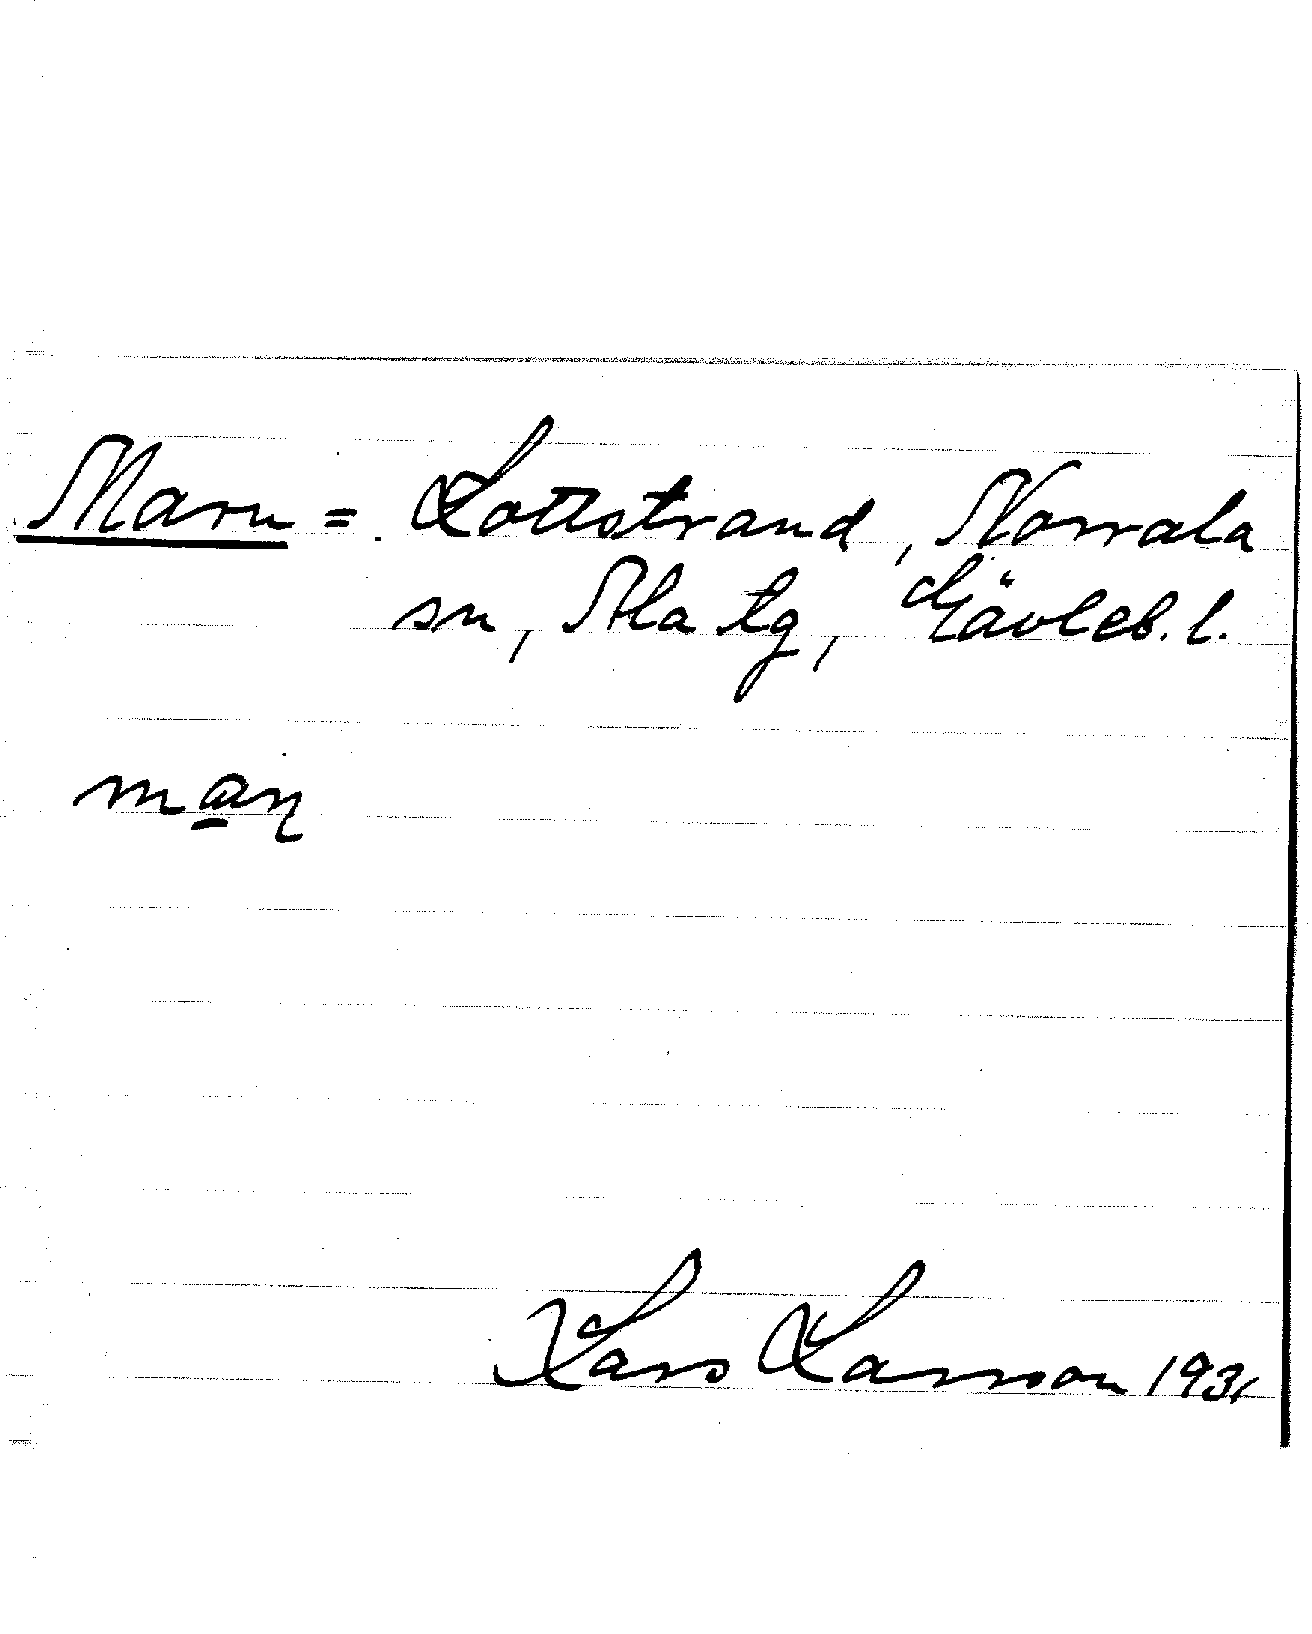 Marn = Lottstrand, Norrala
sn, Ala tg, Gävleb. l.
man̩
Lars Larsson 1931